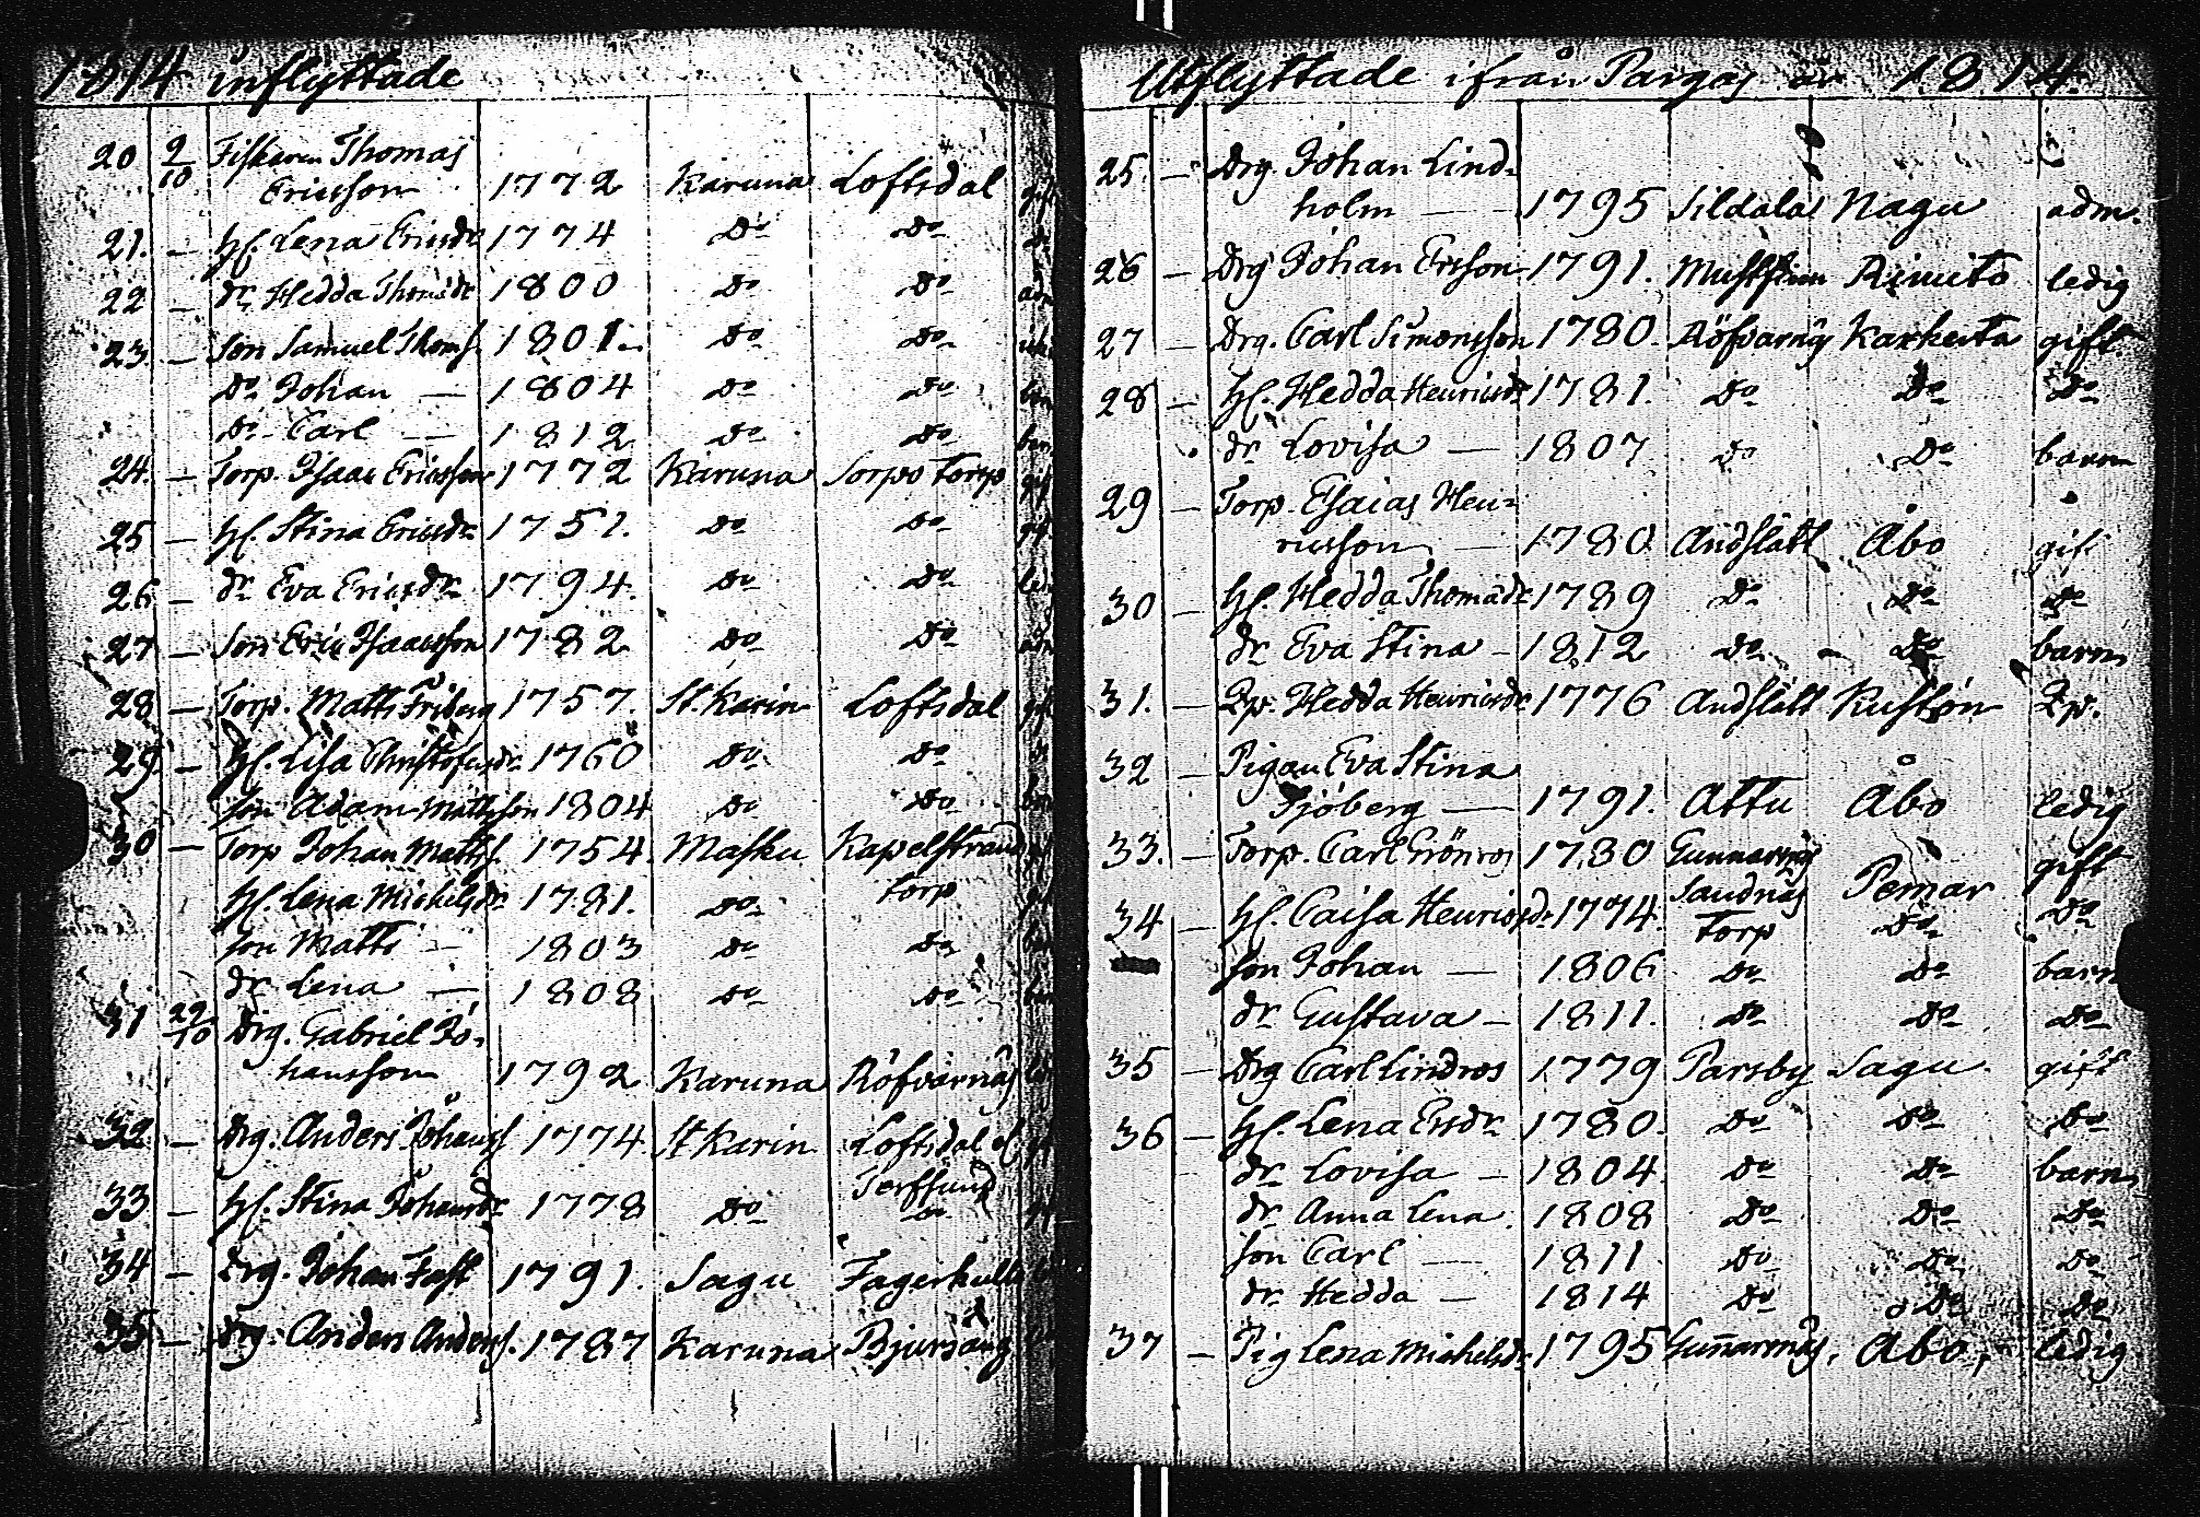 1814 inflyttade
20 9/10 Fiskaren Thomas
Ericsson 1772 Karuna Loftsdal gift
21. — H. Lena Ericsdr 1774 Do Do
22 — dr Hedda Thomsdr 1800 Do Do
23. — Son Samuel Thoms. 1801. Do Do
Do Johan — 1804 Do Do
Do Carl — 1812 Do Do
24. — Torp. Isaac Ericsson 1772 Karuna Sorpo Torp
25 — H. Stina Ericsdr 1751. Do Do
26 — dr Eva Ericsdr 1794. Do Do
27 — Son Eric Isaacsson 1782 Do Do
28 — Torp. Matts Friberg 1757. St. Karin Loftsdal
29. — H. Lisa Christofersdr 1760 Do Do
Son Adam Mattsson 1804 Do Do
30 — Torp Johan Matts. 1754. Masku Kapelstrand
H. Lena Michelsdr 1781. Do torp
Son Matts — 1803 Do Do
dr Lena — 1808 Do Do
31 29/10 Drg. Gabriel Jo-
hansson 1792 Karuna Röfvarnäs
32 — Drg. Anders Johanss 1774 St Karin Loftsdal
33 — H. Stina Johansdr 1778 Do Do
34 — Drg. Johan Fast 1791. Sagu Fagerkulla
35 — Drg. Anders Anders. 1787 Karuna Bjursäng
Utflyttade ifrån Pargas år 1814.
25. — Drg. Johan Lind-
holm — 1795 Sildala Nagu adm.
26 — Drg Johan Ersson 1791. Rimito ledig
27 — Drg. Carl Simonsson 1780. Röfvarnäs Karkeita gift.
28 — H. Hedda Henricsdr 1781. Do Do Do
dr Lovisa — 1807 Do Do barn
29 — Torp. Esaias Hen-
ricsson — 1780 Andslätt Åbo gift
30 — H. Hedda Thomadr 1789 Do Do Do
dr Eva Stina — 1812 Do Do barn
31. — Qp. Hedda Henricsdr 1776 Andslätt Kustön Qp.
32 — Pigan Eva Stina
Sjöberg — 1791. Attu Åbo ledig
33. — Torp. Carl Grönros 1780 Gunnarnäs gift
34 — H. Caisa Henricsdr 1774. Sandnäs Torp Pemar Do Do
Son Johan — 1806 Do Do barn
dr Gustava — 1811. Do Do Do
35 — Drg Carl Lindros 1779 Parsby Sagu gift
36 — H. Lena Ersdr 1780. Do Do Do
dr Lovisa — 1804. Do Do barn
dr Anna Lena. 1808 Do Do Do
Son Carl — 1811 Do Do Do
dr Hedda — 1814 Do Do Do
37 — Pig Lena Michelsdr 1795 Gunnarnäs, Åbo, ledig